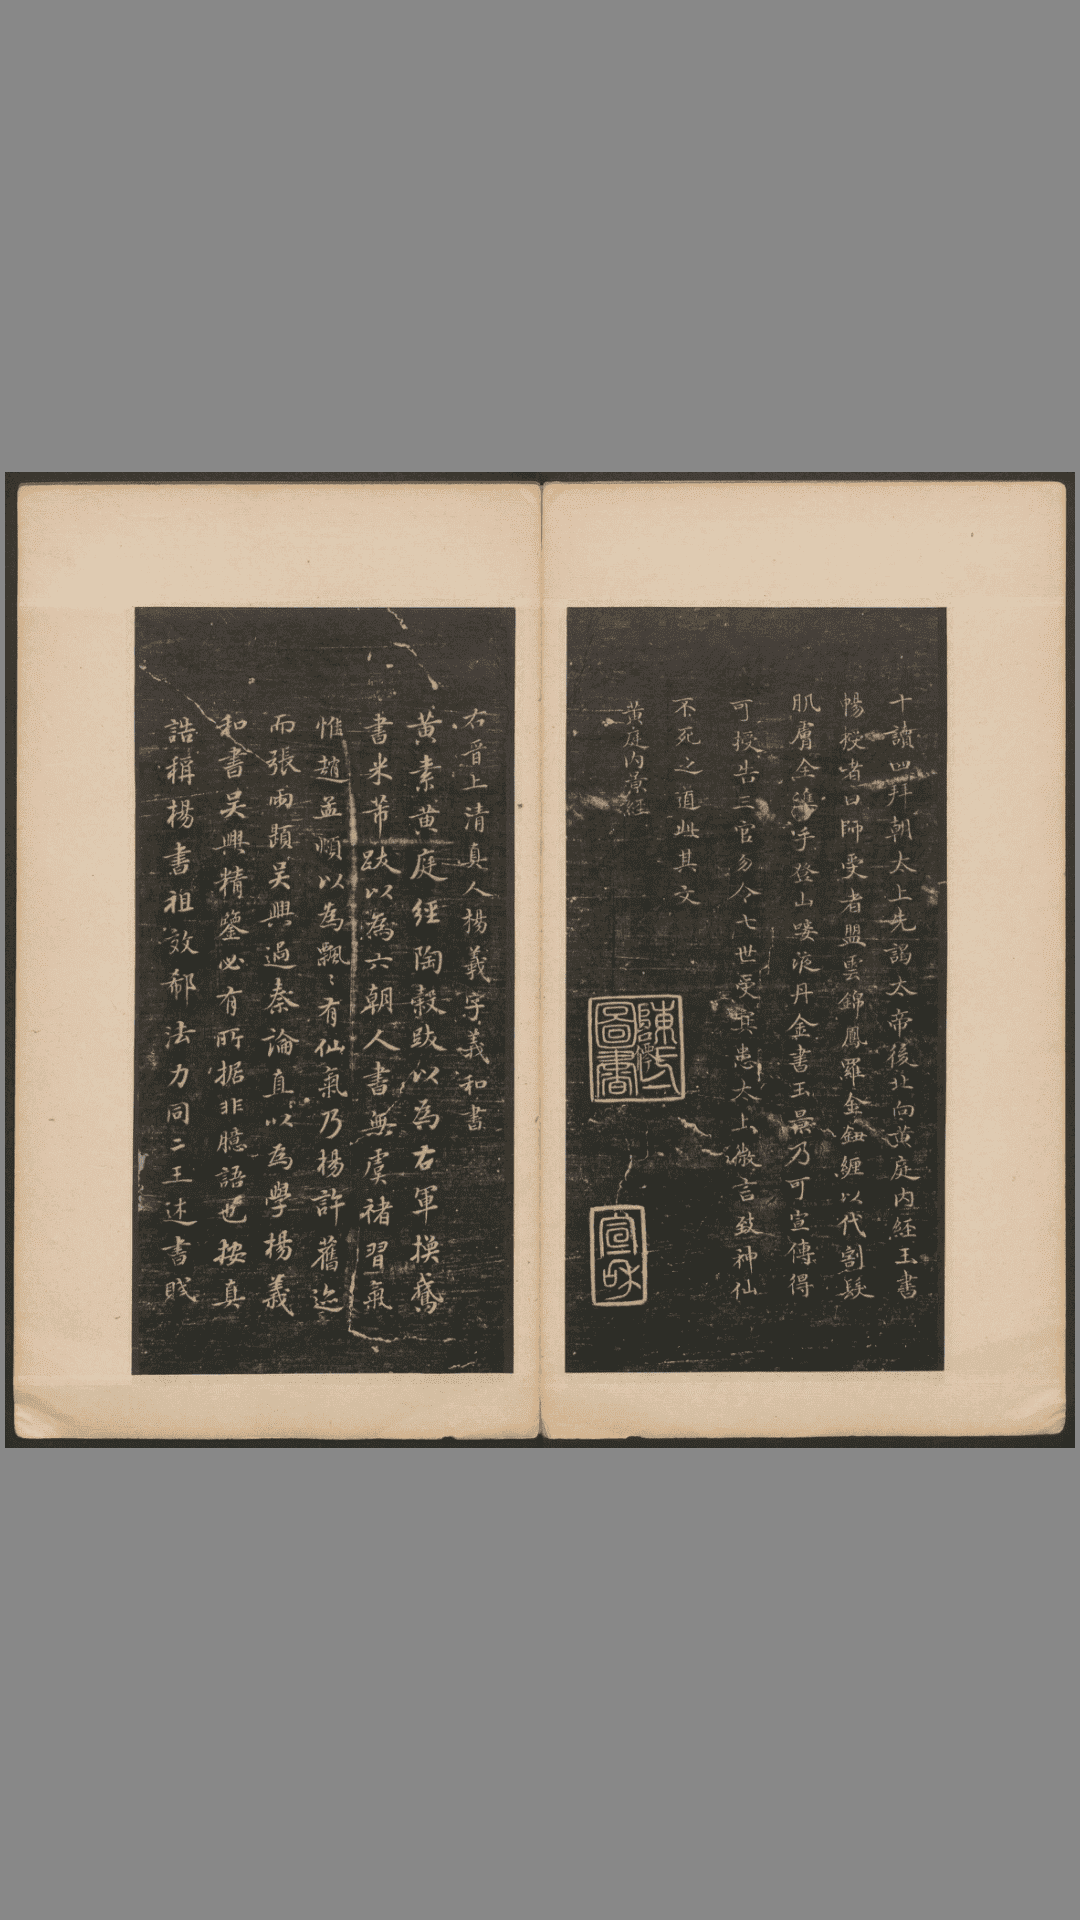 十讀四拜朝太上先謁太帝後北向黃庭內經玉書
暢授者曰師受者盟雲錦鳳羅金鈕纏以代割髮
肌膚全攜手登山唼液丹金書玉景乃可宣傳得
可授告三官勿令七世受冥患太上微言致神仙
不死之道此其文
黃庭內景經
圖書
宣和
右晉上清真人楊羲字羲和書
黃素黃庭經陶穀跋以為右軍換鵞
書米芾跋以為六朝人書無虞褚習氣
惟趙孟頫以為飄〻有仙氣乃楊許舊迹
而張雨題吳興過秦論直以為學楊羲
和書吳興精鑒必有所据非臆語也按真
誥稱楊書祖效郗法力同二王述書賦